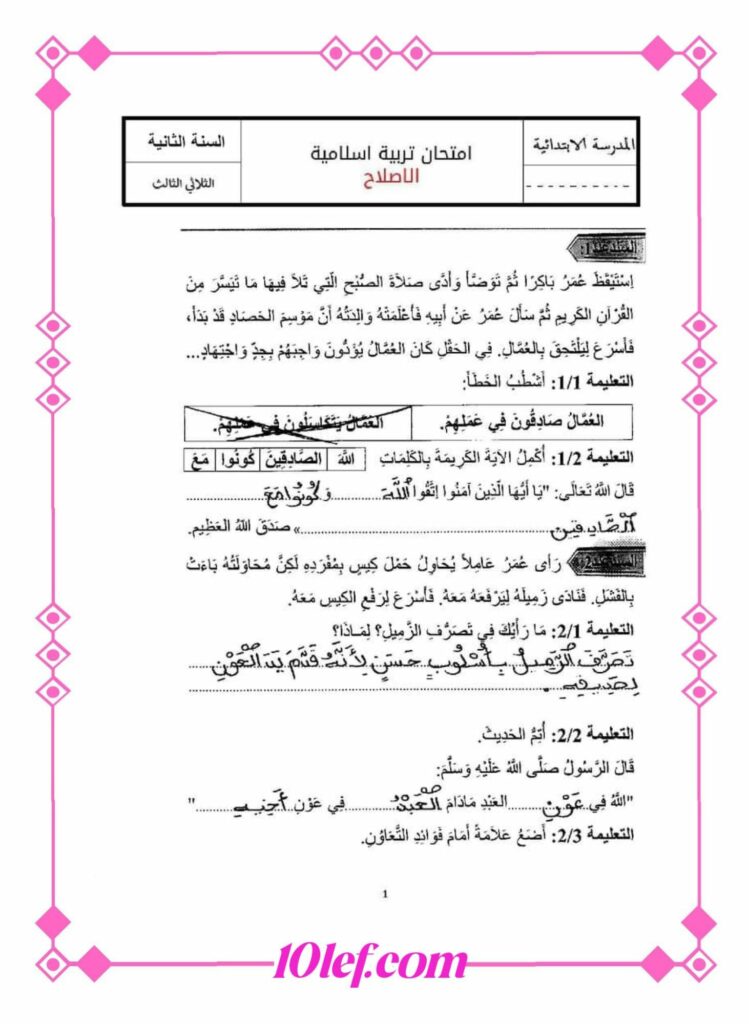 المدرسة الابتدائية
- - - - - - - - - -
امتحان تربية اسلامية
الاصلاح
السنة الثانية
الثلاثي الثالث
السند عدد1:
اِسْتَيْقَظَ عُمَرُ بَاكِرًا ثُمَّ تَوَضَّأَ وَأَدَّى صَلاَةَ الصُّبْحِ الَّتِي تَلاَ فِيهَا مَا تَيَسَّرَ مِنَ
القُرْآنِ الكَرِيمِ ثُمَّ سَأَلَ عُمَرُ عَنْ أَبِيهِ فَأَعْلَمَتْهُ وَالِدَتُهُ أَنَّ مَوْسِمَ الحَصَادِ قَدْ بَدَأَ،
فَأَسْرَعَ لِيَلْتَحِقَ بِالعُمَّالِ. فِي الحَقْلِ كَانَ العُمَّالُ يُؤَدُّونَ وَاجِبَهُمْ بِجِدٍّ وَاجْتِهَادٍ...
التعليمة 1/1: أَشْطُبُ الخَطَأَ:
العُمَّالُ صَادِقُونَ فِي عَمَلِهِمْ. العُمَّالُ يَتَكَاسَلُونَ فِي عَمَلِهِمْ.
التعليمة 1/2: أُكْمِلُ الآيَةَ الكَرِيمَةَ بِالكَلِمَاتِ اللهَ الصَّادِقِينَ كُونُوا مَعَ
قَالَ اللهُ تَعَالَى: "يَا أَيُّهَا الَّذِينَ آمَنُوا اِتَّقُوا اللَّهَ وَ كُونُوا مَعَ
الصَّادِقِينَ » صَدَقَ اللهُ العَظِيم.
السند عدد2: رَأَى عُمَرُ عَامِلاً يُحَاوِلُ حَمْلَ كِيسٍ بِمُفْرَدِهِ لَكِنَّ مُحَاوَلَتُهُ بَاءَتْ
بِالفَشَلِ. فَنَادَى زَمِيلَهُ لِيَرْفَعَهُ مَعَهُ. فَأَسْرَعَ لِرَفْعِ الكِيسِ مَعَهُ.
التعليمة 2/1: مَا رَأْيُكَ فِي تَصَرُّفِ الزَّمِيلِ؟ لِمَاذَا؟
تَصَرَّفَ الزَّمِيلُ بِأُسْلُوبٍ حَسَنٍ لِأَنَّهُ قَدَّمَ يَدَ الْعَوْنِ
لِصَدِيقِهِ.
التعليمة 2/2: أُتِمُّ الحَدِيثَ.
قَالَ الرَّسُولُ صَلَّى اللهُ عَلَيْهِ وَسَلَّمَ:
"اللهُ فِي عَوْنِ العَبْدِ مَادَامَ الْعَبْدُ فِي عَوْنِ أَخِيهِ "
التعليمة 2/3: أَضَعُ عَلاَمَةً أَمَامَ فَوَائِدِ التَّعَاوُنِ.
1
10lef.com